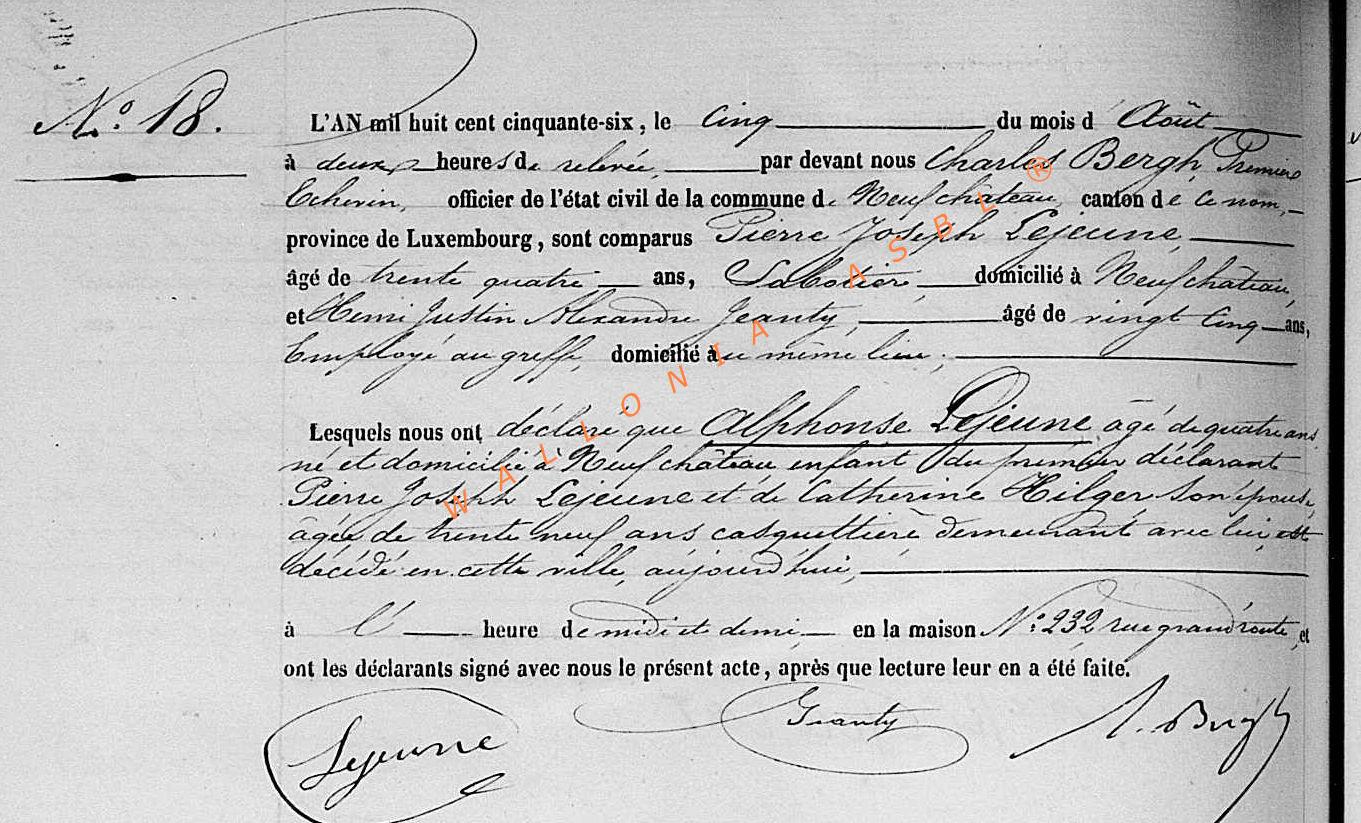 N.º 18.
L'AN mil huit cent cinquante-six, le Cinq du mois d' Août
à deux heures de relevée, par devant nous Charles Bergh, Premier
Echevin, officier de l'état civil de la commune de Neufchâteau, canton dé ce nom,
province de Luxembourg, sont comparus Pierre Joseph Lejeune,
âgé de trente quatre ans, Sabotier, domicilié à Neufchâteau,
et Henri Justin Alexandre Jeanty, âgé de vingt Cinq ans,
Employé au greffe, domicilié au même lieu;
Lesquels nous ont déclaré que Alphonse Lejeune âgé de quatre ans
né et domicilié à Neufchâteau enfant du premier déclarant
Pierre Joseph Lejeune et de Catherine Hilger son épouse,
âgée de trente neuf ans casquettière demeurant avec lui, est
décédé en cette ville, aujourd'hui,
à l' heure de midi et demi, en la maison N.º 232 rue grand'route, et
ont les déclarants signé avec nous le présent acte, après que lecture leur en a été faite.
Lejeune Jeanty Bergh
WALLONIA ASBL ®